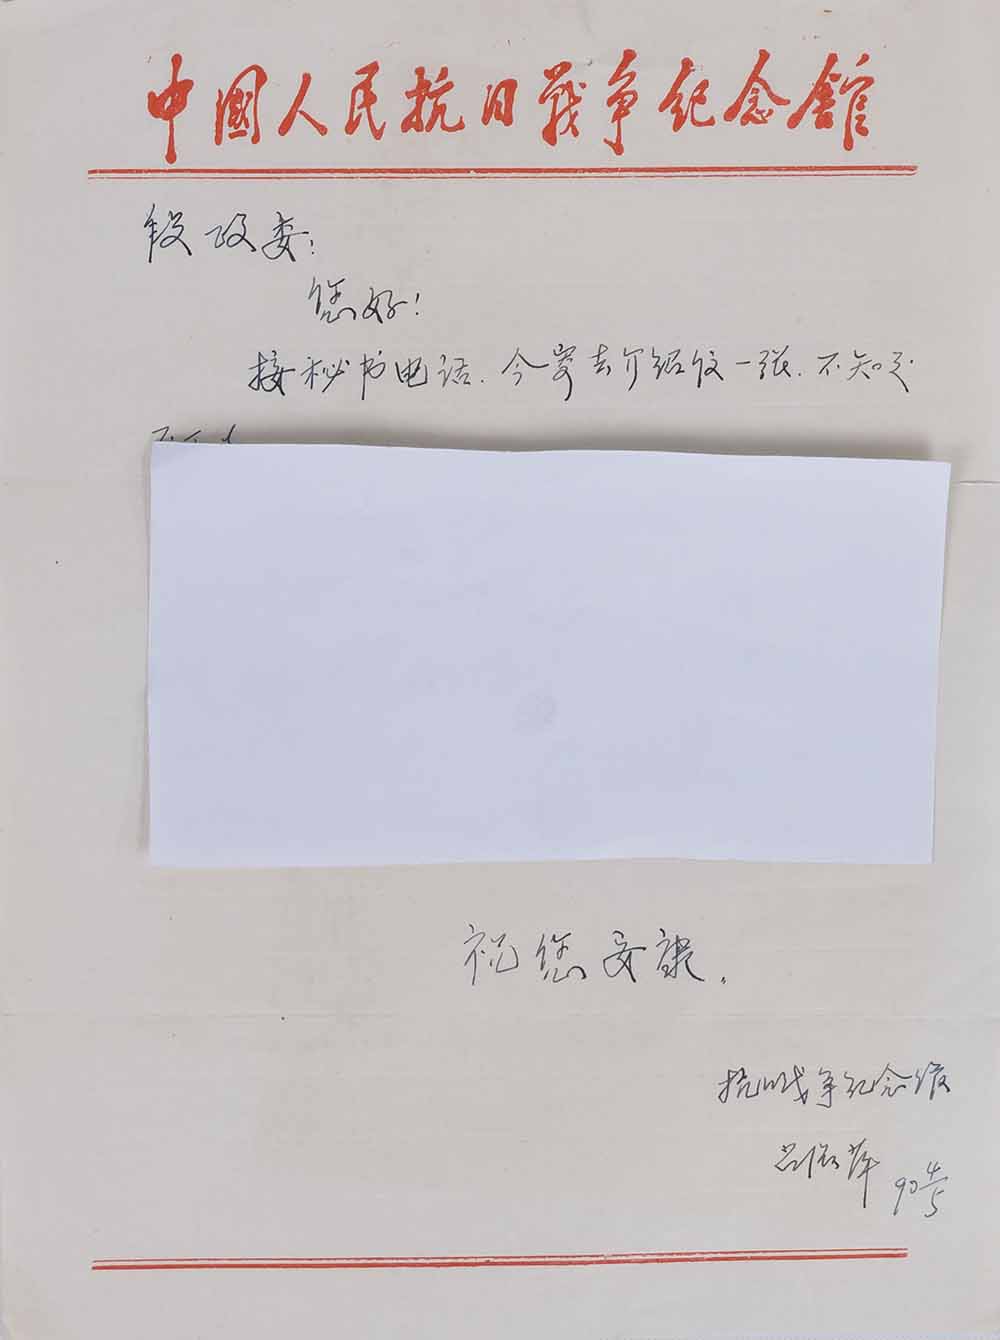 中國人民抗日戰争纪念館
段政委：
您好！
接秘书电话，今寄去介绍信一张，不知是
祝您安康。
抗日战争纪念馆
90 4/5